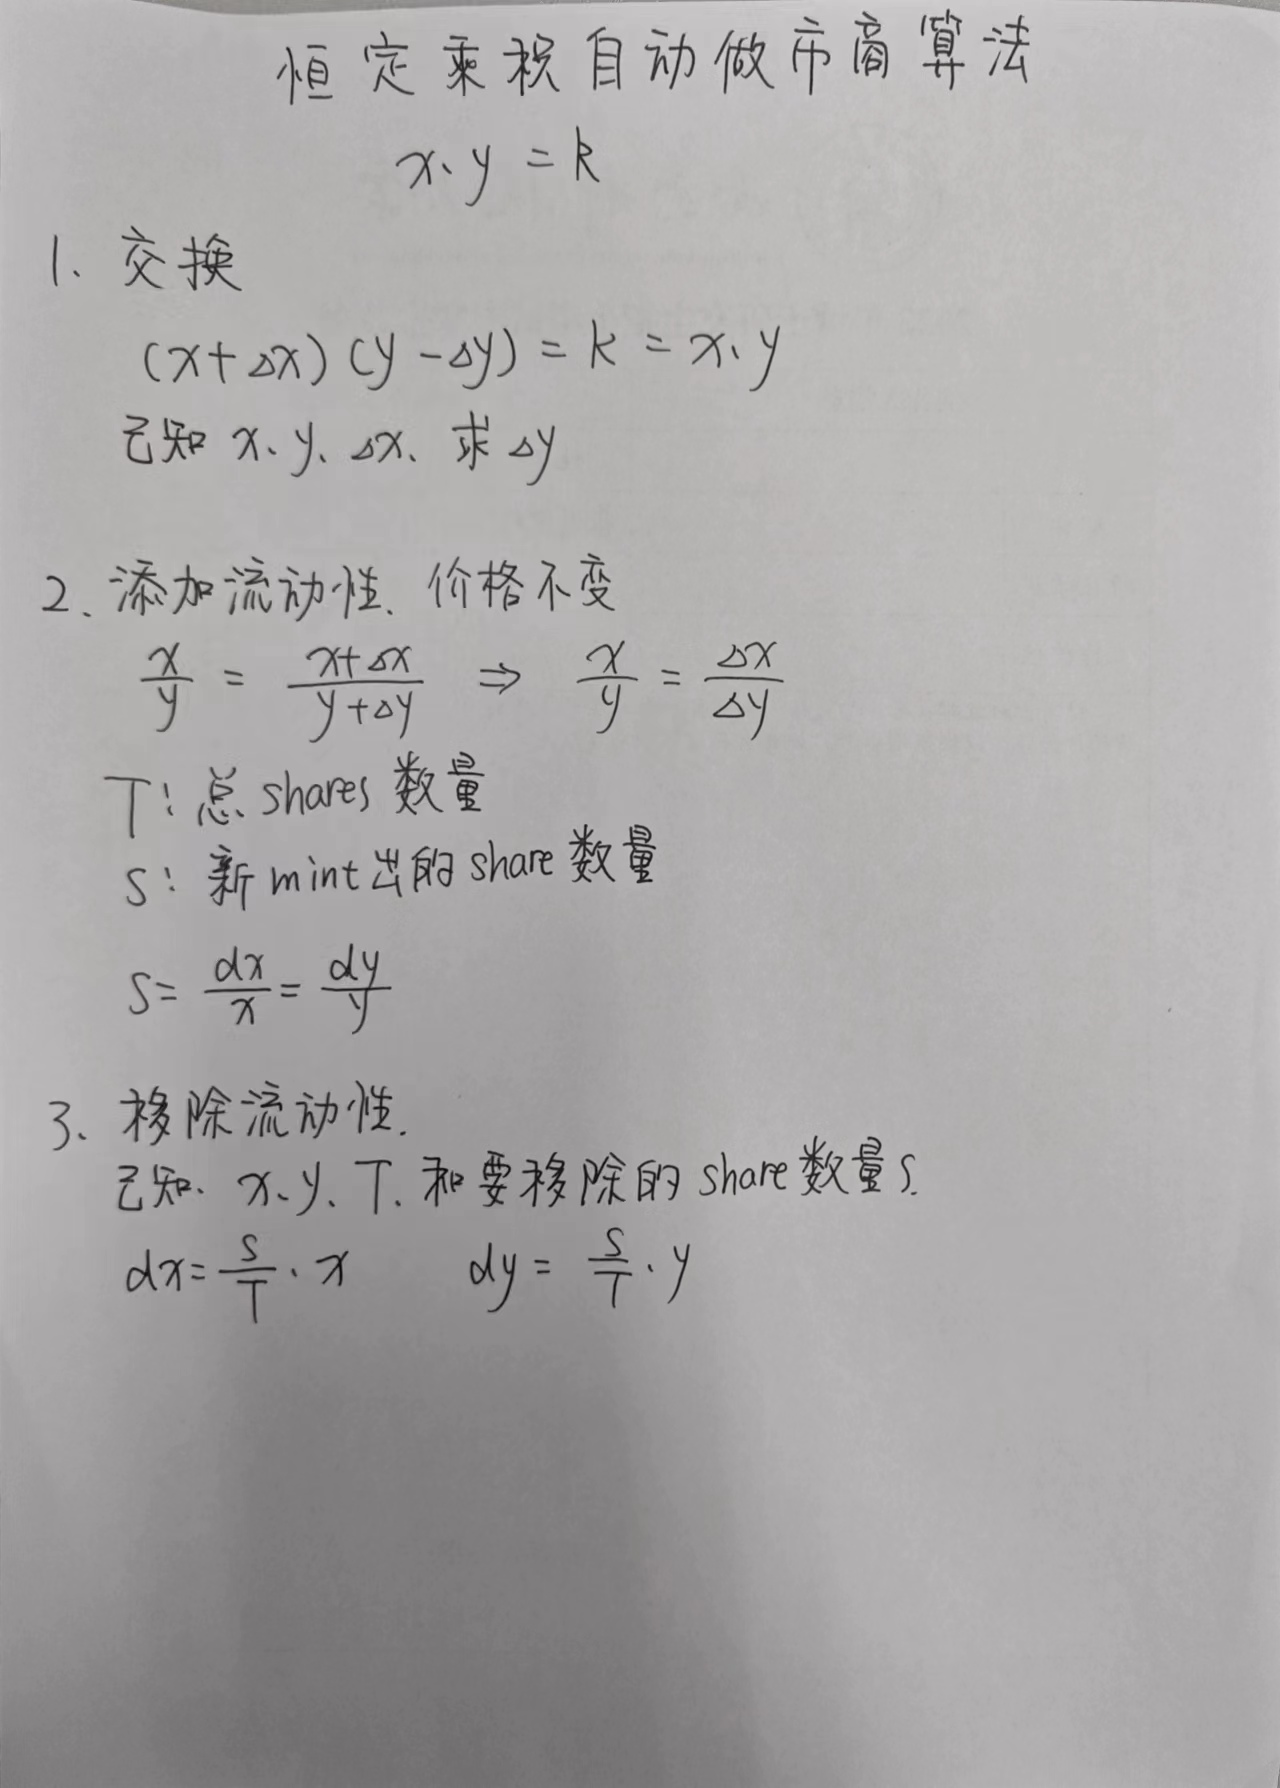 恒定乘积自动做市商算法
x、y = k
1、交换
(x+△x)(y-△y) = k = x、y
已知 x、y、△x、求△y
2、添加流动性、价格不变
x/y = (x+△x)/(y+△y) ⇒ x/y = △x/△y
T: 总 shares 数量
S: 新 mint 出的 share 数量
S = dx/x = dy/y
3、移除流动性.
已知、x、y、T、和要移除的 share 数量 S.
dx = S/T · x dy = S/T · y